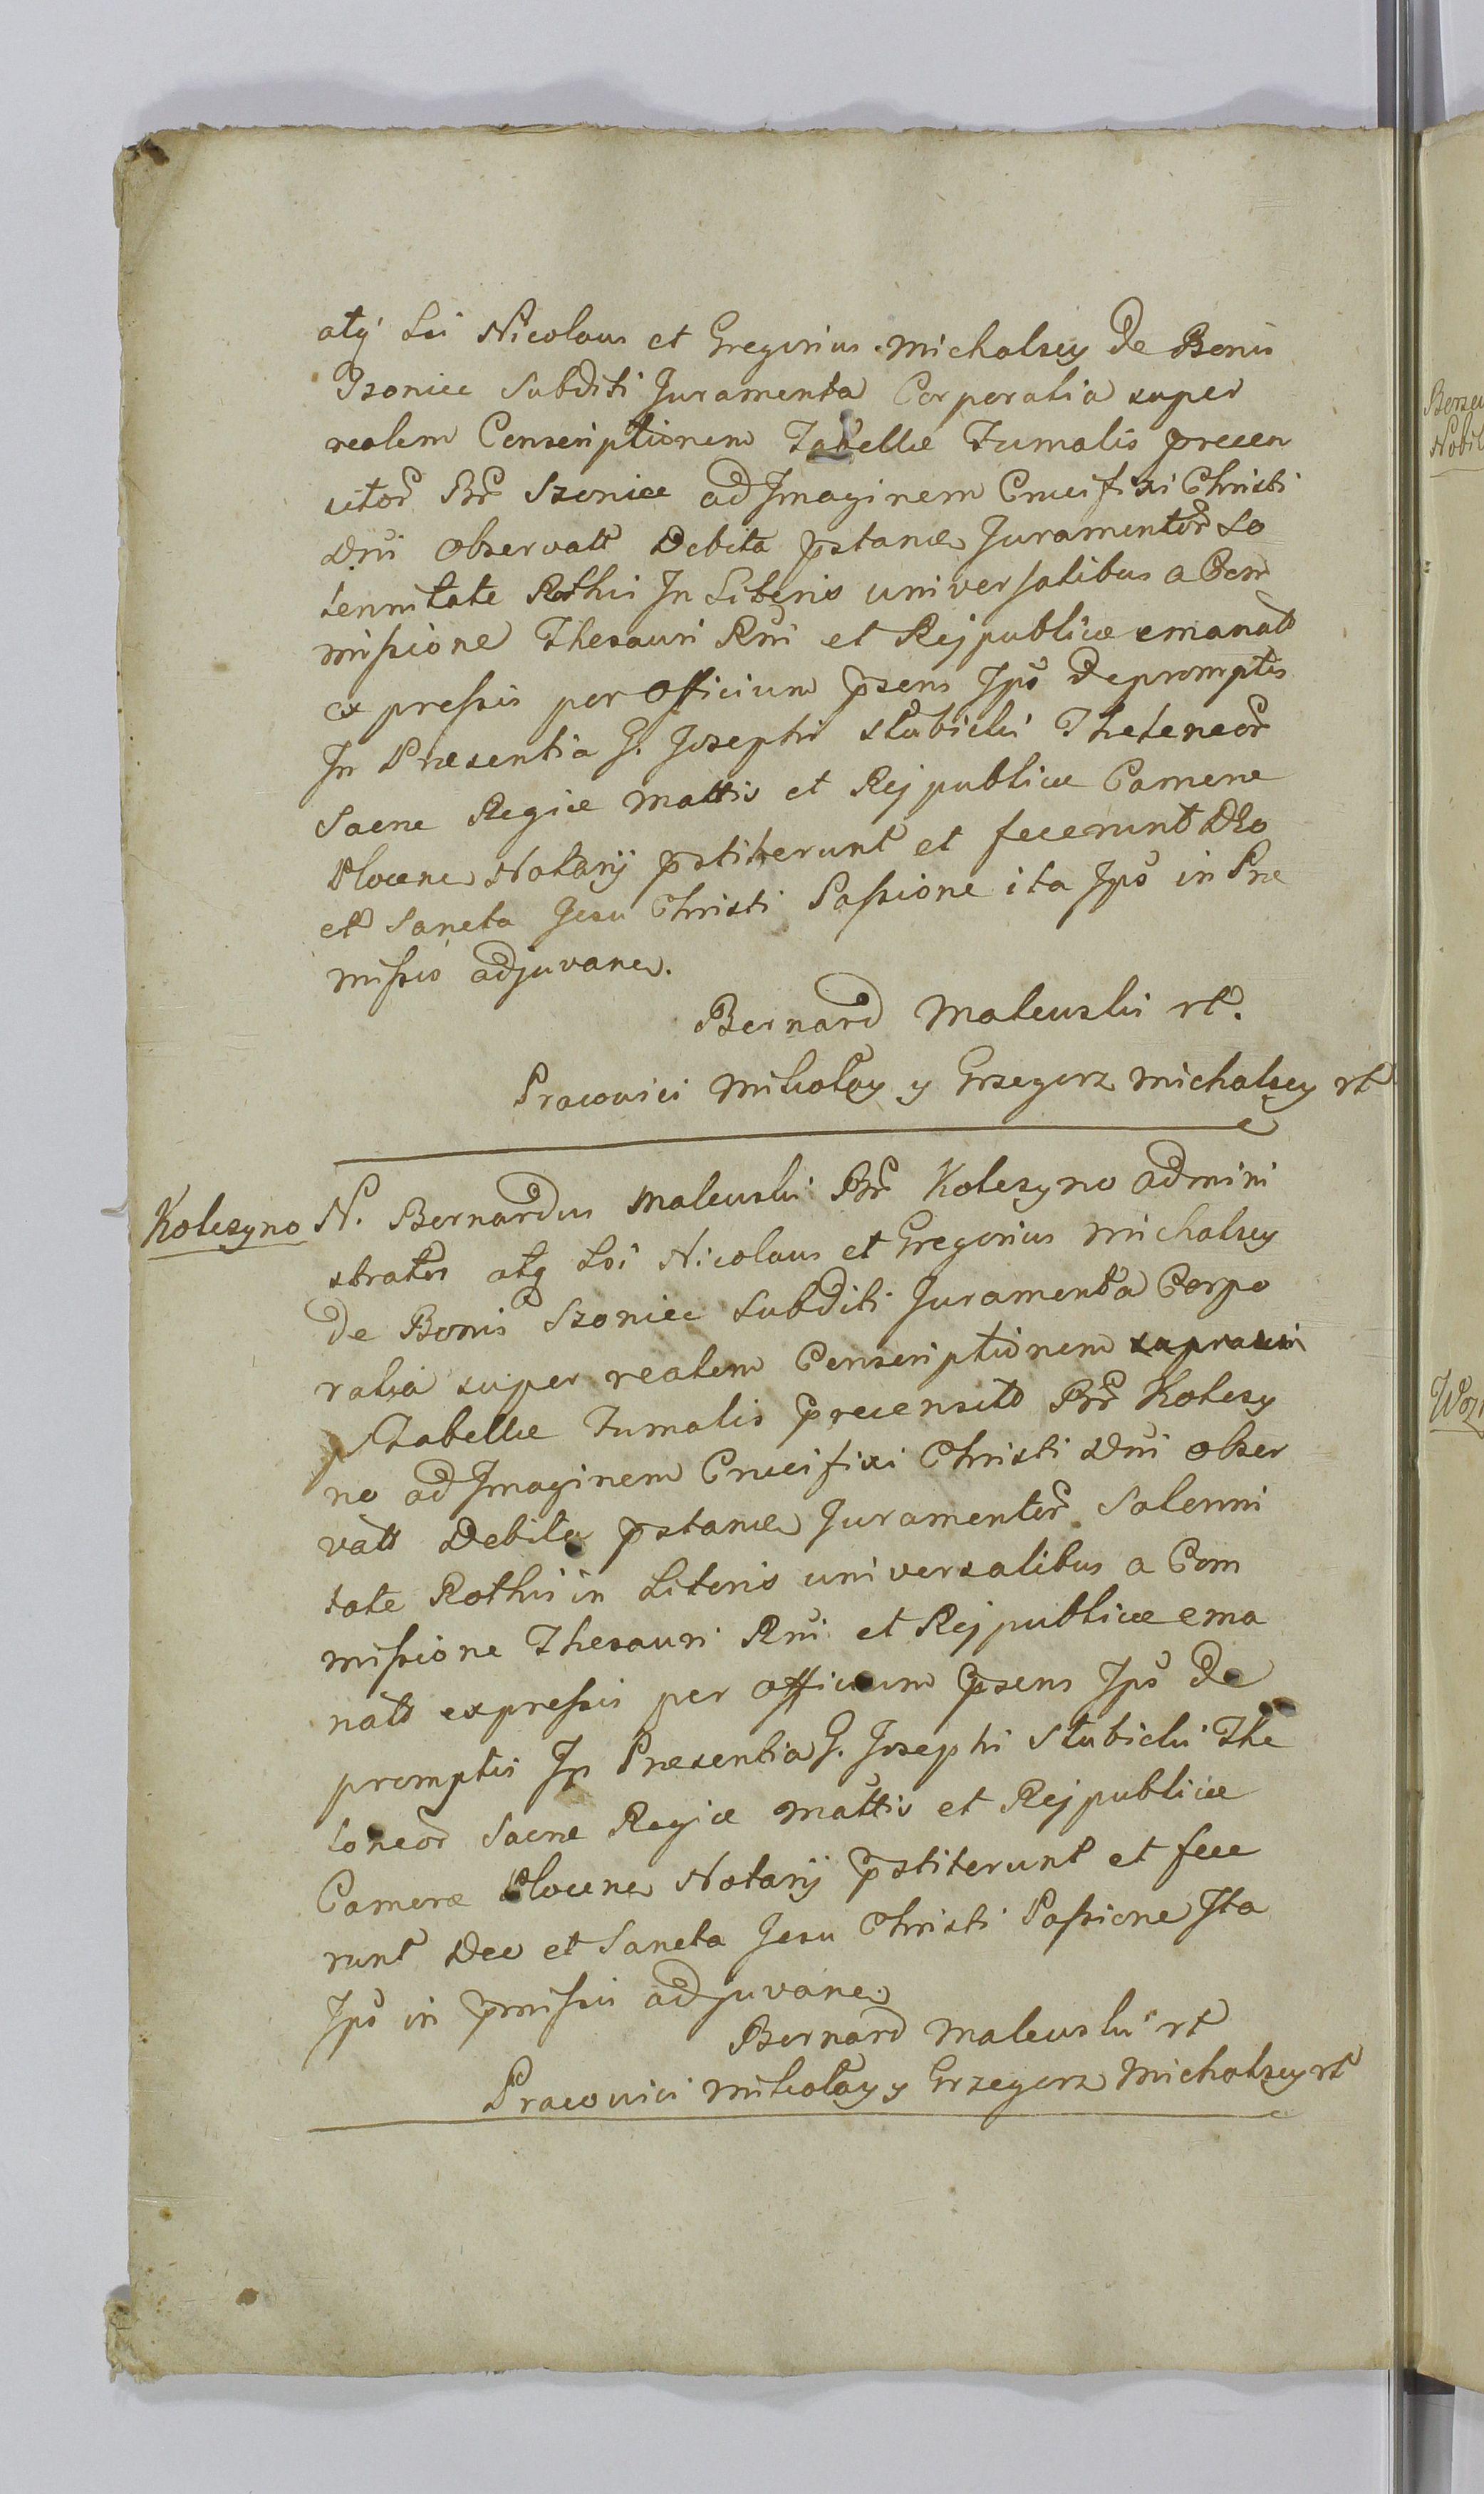 atq́ Lsi Nicolaus et Gregorius Michalscy De Bonis
Szonice Subditi Juramenta Corporalia super
realem Conscriptionem Tabellæ Fumalis precen
sitor Bnr Szonice ad Imaginem Crucifixi Christi
Dni observatt Debita pstanæ Juramentor So
lennitate Rothis In Literis universalibus a Com
missione Thesauri Rni et Reipublicæ emanatt
expressis per Officium psens Jps Depromptis
In Præsentia G. Josephi Słubicki Theloneor
Sacræ Regiæ Mattis et Reipublicæ Cameræ
Plocen Notarij pstiterunt et fecerunt Deo
et Sancta Jesu Christi Passione ita Jps in Præ
missis adjuvane.
Bernard Malewski rt.
Pracowici Mikołay y Grzegorz Michalscy rt
Kolczyno N. Bernardus Malewski Bnr Kolczyno admini
strator atq Lsi Nicolaus et Gregorius Michalscy
De Bonis Szonice Subditi Juramenta Corpo
ralia super realem Conscriptionem
Tabellæ Fumalis precensit Bnr Kolczy
no ad Imaginem Crucifixi Christi Dni obser
vatt Debita pstanæ Juramentor Solenni
tate Rothis in Literis universalibus a Com
missione Thesauri Rni et Reipublicæ ema
natt expressis per officium psens Jps De
promptis In Præsentia G. Josephi Słubicki The
loneor Sacræ Regiæ Mattis et Reipublicæ
Cameræ Plocen Notarij pstiterunt et fece
runt Deo et Sancta Jesu Christi Passione Ita
Jps in pmissis adjuvane
Bernard Malewski rt
Pracowici Mikołay y Grzegorz Michalscy rt